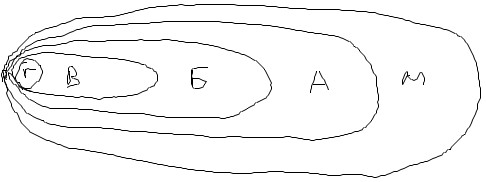 Г В Б А м